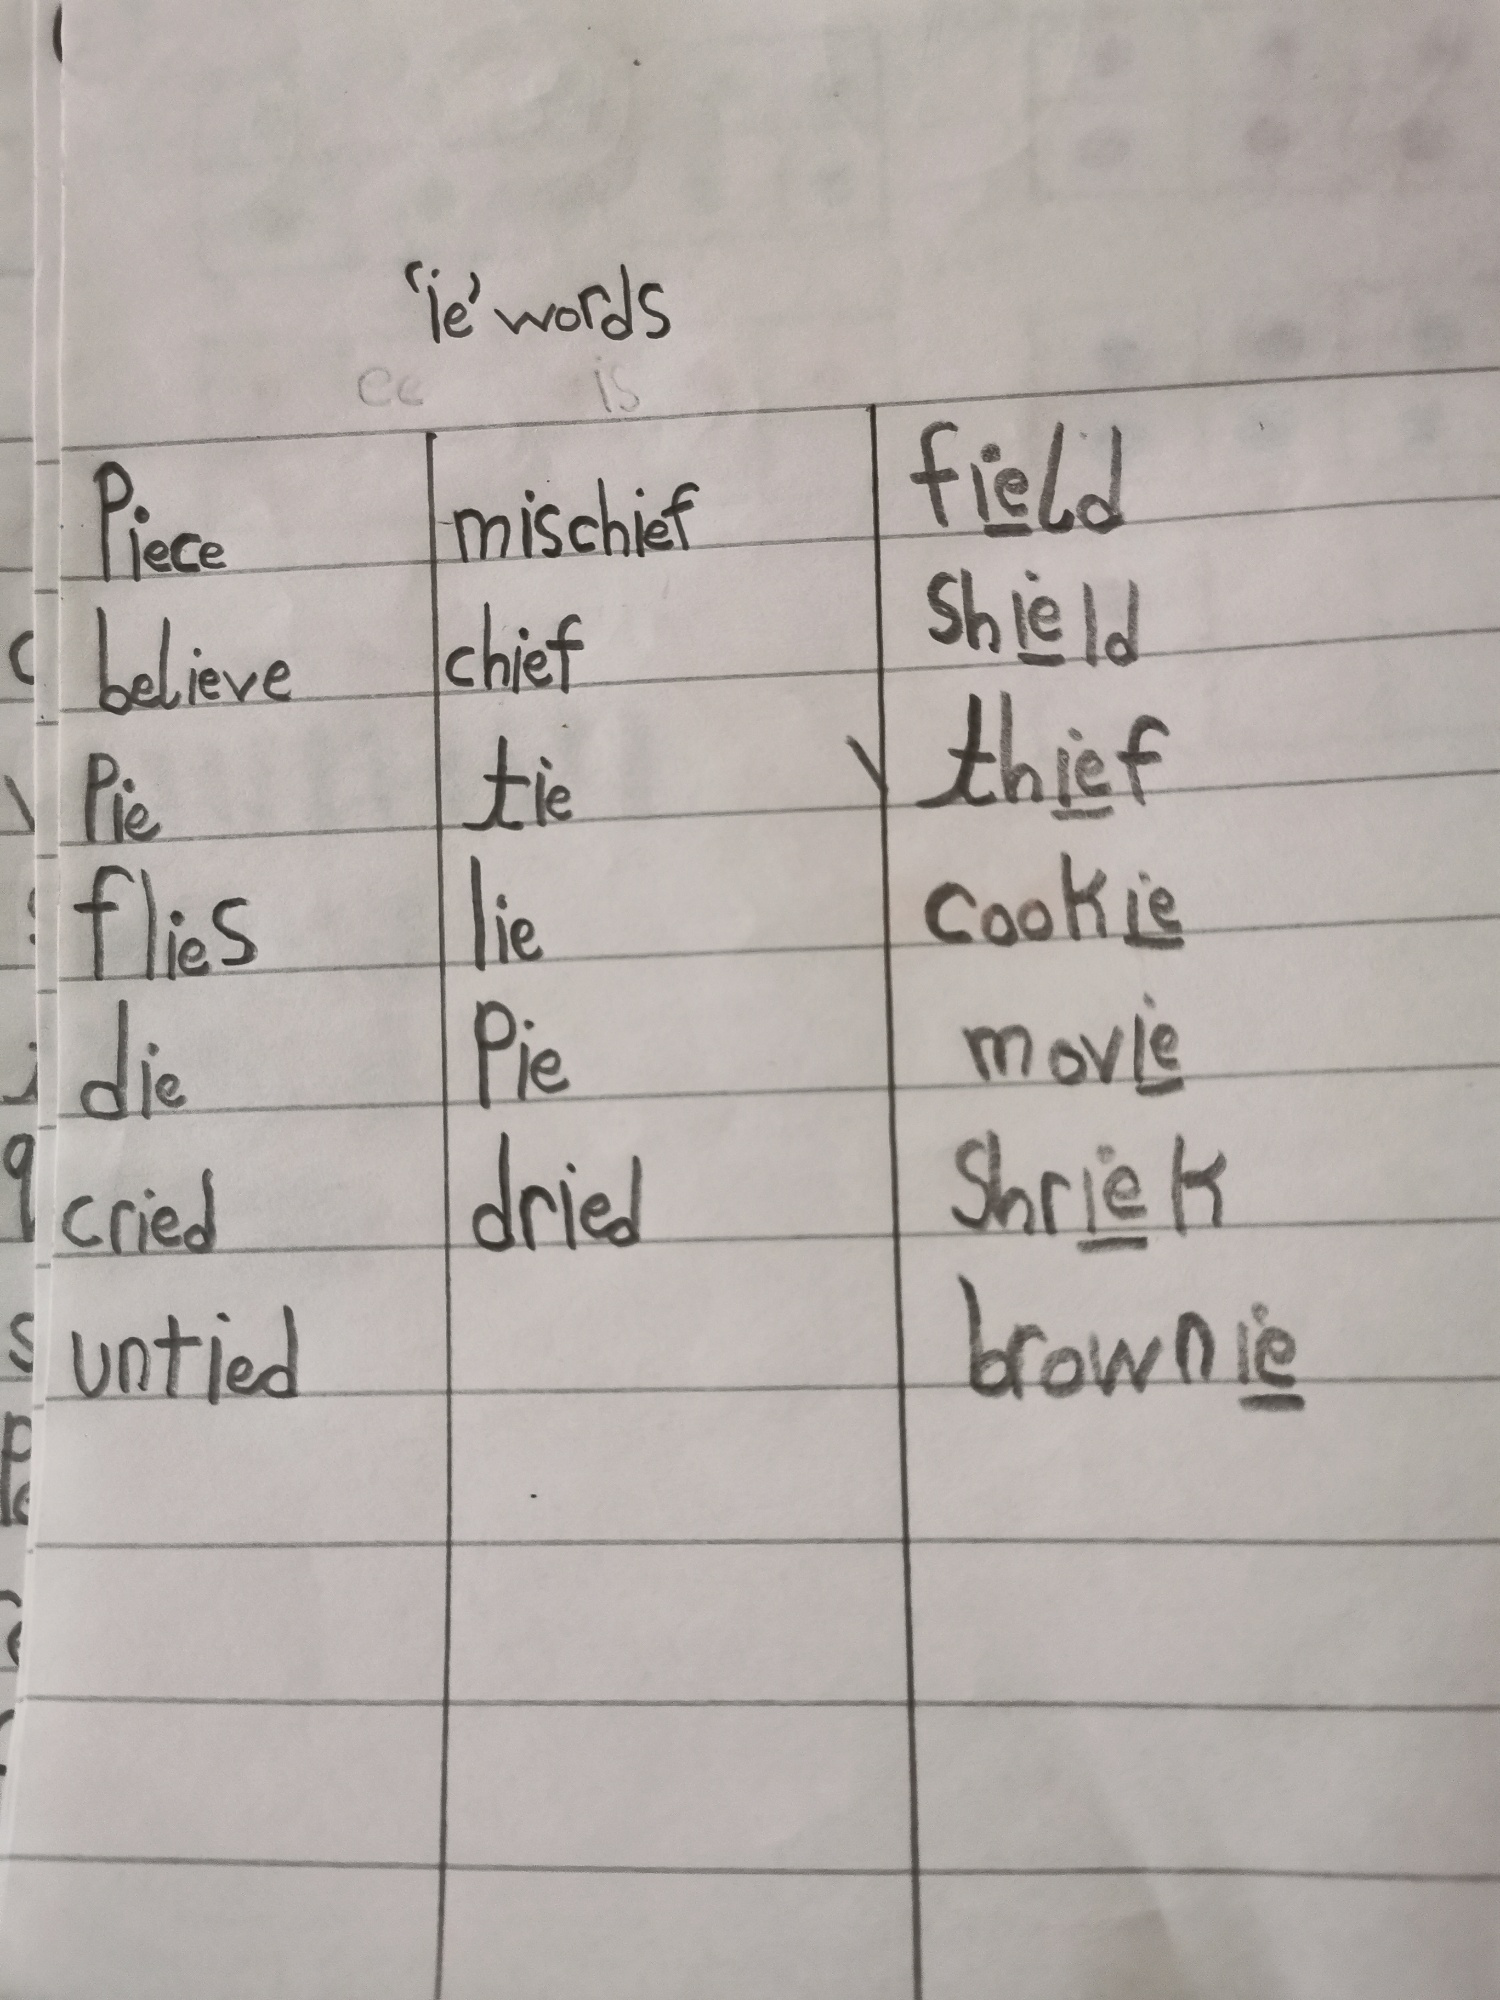 'ie' words
ee is
Piece mischief field
believe chief shield
Pie tie thief
flies lie cookie
die Pie movie
cried dried Shriek
untied brownie